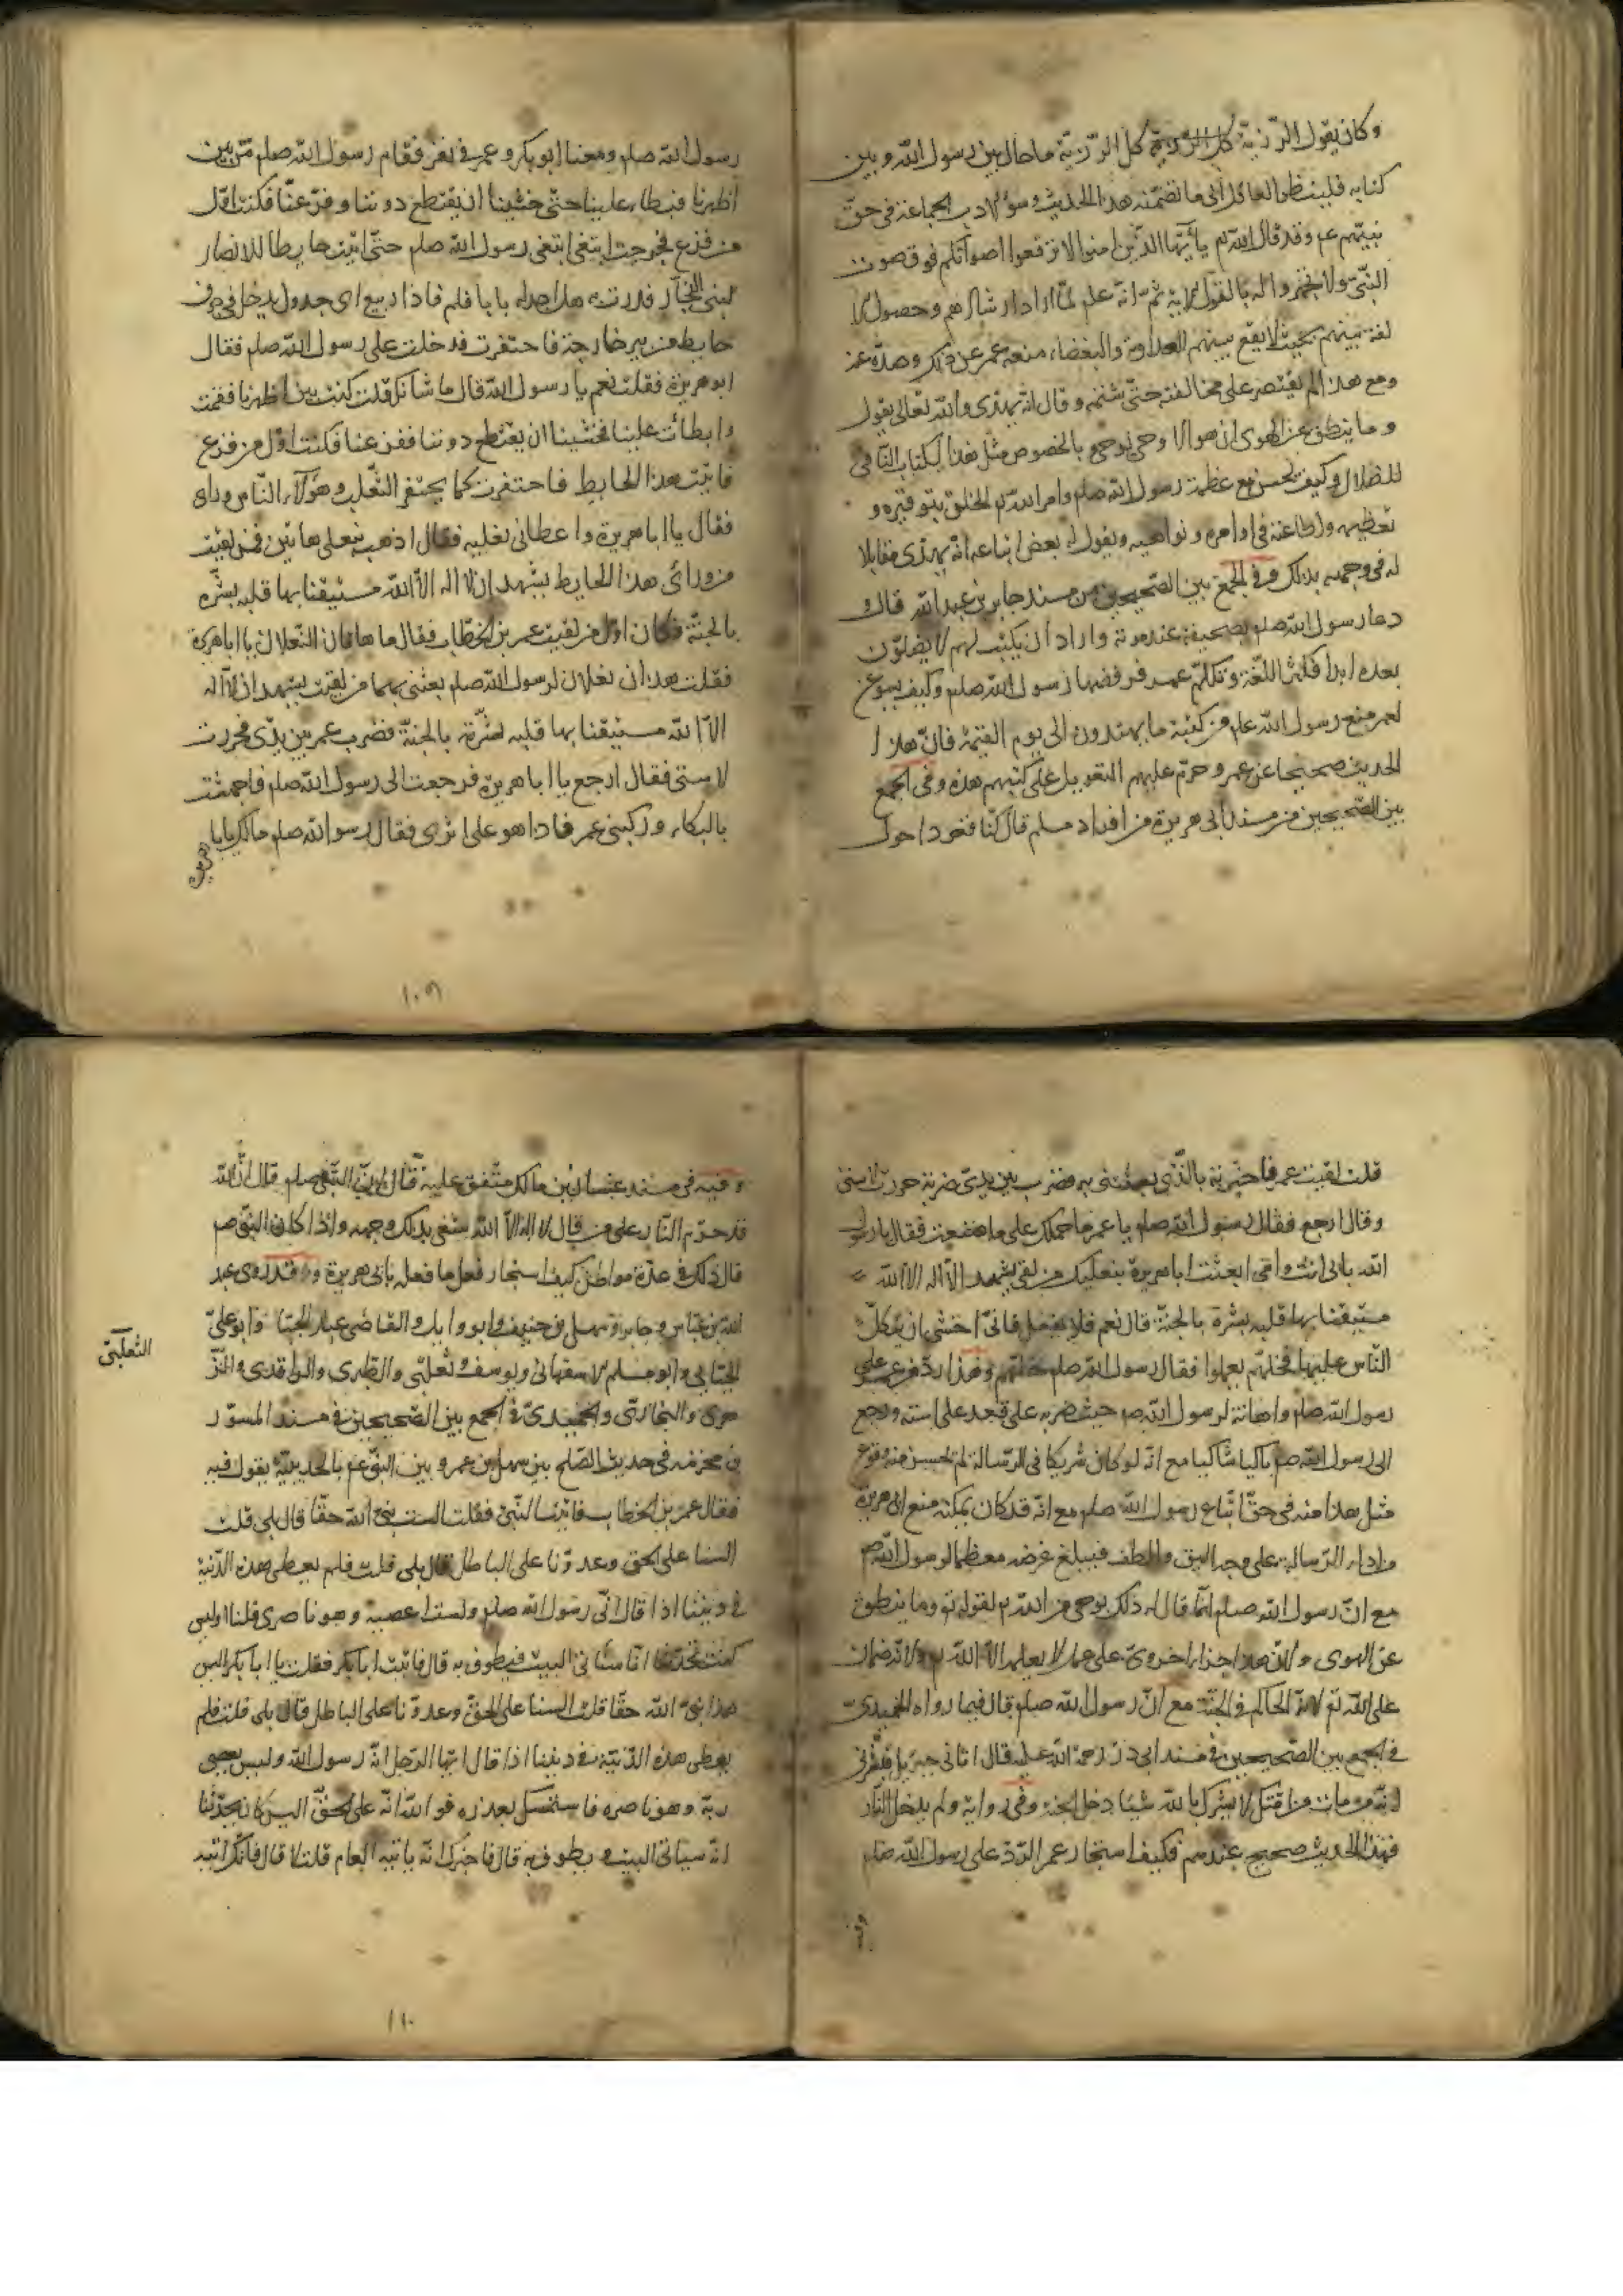 وكان يقول الرزية كل الرزية كل الرزية ما حال بين رسول الله وبين
كتابه فلينظر العاقل الى ما تضمنه هذا الحديث وسوء لادب الجماعة فى حق
نبيهم عم وقد قال الله تم يا أيها الذين امنوا لا ترفعوا اصواتكم فوق صوت
النبى ولا تجهروا له بالقول لاية ثم انه علم لما اراد ارشادهم وحصول لا
لفة بينهم بحيث لا يقع بينهم العداوة والبغضاء منعه عمر عن ذلك وصده عنه
ومع هذا لم يقتصر على مخالفته حتى شتمه وقال انه يهذى والله تعالى يقول
وما ينطق عن الهوى ان هو الا وحى يوحى بالخصوص مثل هذا الكتاب النافى
للضلال وكيف يحسن مع عظمة رسول الله صلم وامر الله تم الخلق بتوقيره و
تعظيمه واطاعته فى اوامره ونواهيه ويقول له بعض اتباعه انه يهذى مقابلا
له فى وجهه بذلك وفى الجمع بين الصحيحين من مسند جابر بن عبد الله قال
دعا رسول الله صلم بصحيفة عند موته واراد ان يكتب لهم لا يضلون
بعده ابدا فكثر اللغة وتكلم عمر فرفضها رسول الله صلم وكيف يسوغ
لعمر منع رسول الله علم من كتبة ما يهتدون الى يوم القيمة فان هذا ا
لحديث صحيحا عن عمر وحرم عليهم التعويل على كتبهم هذه وفى الجمع
بين الصحيحين من مسند ابى هريرة من افراد مسلم قال كنا قعودا حول
رسول الله صلم ومعنا ابو بكر وعمر فى نفر فقام رسول الله صلم من بين
اظهرنا فبطاء علينا حتى خشينا ان يقتطع دوننا وفزعنا فكنت اول
من فزع فخرجت ابتغى ابتغى رسول الله صلم حتى اتيت حايطا للانصار
لبنى النجار فدرت به هل اجد له بابا فلم فاذا ربيع اى جدول يدخل فى جوف
حايط من بير خارجة فاحتفرت فدخلت على رسول الله صلم فقال
ابو هريرة فقلت نعم يا رسول الله قال ما شانك قلت كنت بين اظهرنا فقمت
وابطأت علينا فخشينا ان يقتطع دوننا ففزعنا فكنت اول من فزع
فاتيت هذا الحايط فاحتفرت كما يحتفر الثعلب وهؤلاء الناس وراى
فقال يا ابا هريرة واعطانى نعليه فقال اذهب بنعلى هاتين فمن لقيت
من ورائ هذا الحايط يشهد ان لا اله الا الله مستيقنا بها قلبه بشره
بالجنة فكان اول من لقيت عمر بن الخطاب فقال ما هاتان النعلان يا ابا هريرة
فقلت هذان نعلان لرسول الله صلم بعثنى بهما من لقيت يشهد ان لا اله
الا الله مستيقنا بها قلبه بشرته بالجنة فضرب عمر بين يدى فخررت
لاستى فقال ارجع يا ابا هريرة فرجعت الى رسول الله صلم فاجهشت
بالبكاء وركبنى عمر فاذا هو على اثرى فقال رسول الله صلم مالك يا با
هريرة
١٠٩
قلت لقيت عمر فاخبرته بالذى بعثتنى به فضرب بين يدى ضربة خررت لاستى
وقال ارجع فقال رسول الله صلم يا عمر ما حملك على ما صنعت فقال يا رسول
الله بابى انت وامى ابعثت ابا هريرة بنعليك من لقى يشهد الا اله الا الله
مستيقنا بها قلبه بشرة بالجنة قال نعم فلا تفعل فانى اخشى ان يتكل
الناس عليها فخلهم يعملوا فقال رسول الله صلم خلهم وهذا رد من عمر على
رسول الله صلم واهانة لرسول الله صم حيث ضربه على قعد على استه ورجع
الى رسول الله صم باكيا شاكيا مع انه لو كان شريكا فى الرسالة لم يحسن منه وقوع
مثل هذا منه فى حق اتباع رسول الله صلم مع انه قد كان يمكنه منع ابى هريرة
من اداء الرسالة على وجه اليق والطف فيبلغ غرضه معظما لرسول الله صم
مع ان رسول الله صلم انما قال له ذلك بوحى من الله تم لقوله تم وما ينطق
عن الهوى ولان هذا جزاء اخروى على عمل لا يعلمه الا الله تم ولانه ضمان
على الله تم لانه الحاكم فى الجنة مع ان رسول الله صلم قال فيما رواه الحميدى
فى الجمع بين الصحيحين فى مسند ابى ذر رحمة الله عليه قال اتانى جبرئيل فبشرنى
انه من مات من امتك لا يشرك بالله شيئا دخل الجنة وفى رواية ولم يدخل النار
فهذا الحديث صحيح عندهم فكيف استجار عمر الرد على رسول الله صلم
وفيه
وفيه فى مسند عتبان بن مالك متفق عليه قال ان النبى صلم قال ان الله
قد حرم النار على من قال لا اله الا الله يبتغى بذلك وجهه واذا كان النبى صم
قال ذلك فى عدة مواطن كيف استجار فعل ما فعل بابى هريرة وقد روى عبد
الله بن عباس وجابر وسهل بن حنيف وابو وايل والقاضى عبد الجبار وابو على
الجبايى وابو مسلم لاصفهانى ويوسف وثعلبى والطبرى والواقدى والزّ
الثعلبى
هرى والبخارى والحميدى فى الجمع بين الصحيحين فى مسند المسور
بن مخرمه فى حديث الصلح بين سهل بن عمرو وبين النبى عم بالحديبية يقول فيه
فقال عمر بن الخطاب فاتيت النبى فقلت الست نبى الله حقا قال بلى قلت
السنا على الحق وعدونا على الباطل قال بلى قلت فلم يعطى هذه الدنية
فى ديننا اذا قال انى رسول الله صلم ولست اعصيه وهو ناصرى قلنا اوليس
كنت تحدثنا انا سنأتى البيت فيطوف به قال فاتيت ابا بكر فقلت يا ابا بكر اليس
هذا نبى الله حقا قلت السنا على الحق وعدونا على الباطل قال بلى قلت فلم
يعطى هذه الدنية فى ديننا اذا قال ايها الرجل انه رسول الله وليس يعصى
ربه وهو ناصره فاستمسك بعذره فو الله انه على الحق اليس كان يحدثنا
انه سياتى البيت ويطوف به قال فاخبرك انه ياتيه العام قلت لا قال فانك اتيه
١١٠